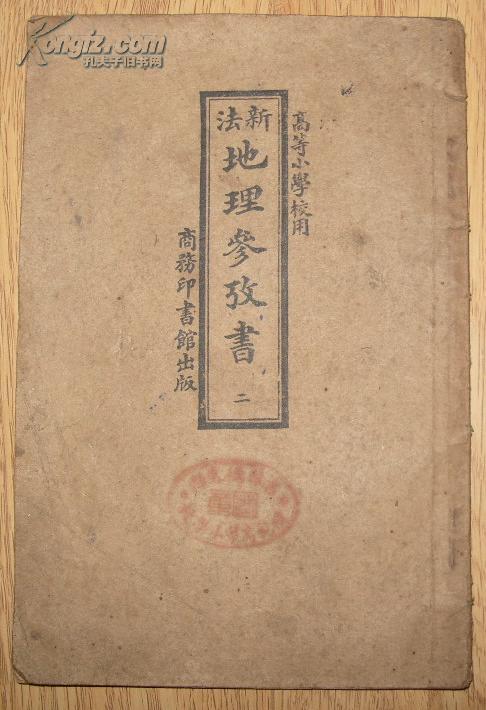 Kongfz.com
孔夫子旧书网
高等小學校用
新法
地理參攷書
二
商務印書館出版